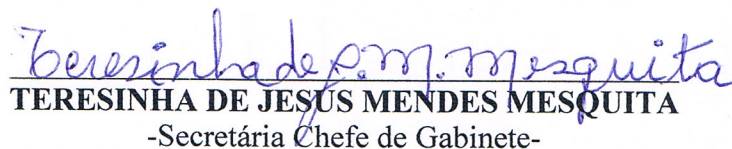 Teresinha de J. M. Mesquita
TERESINHA DE JESUS MENDES MESQUITA
-Secretária Chefe de Gabinete-